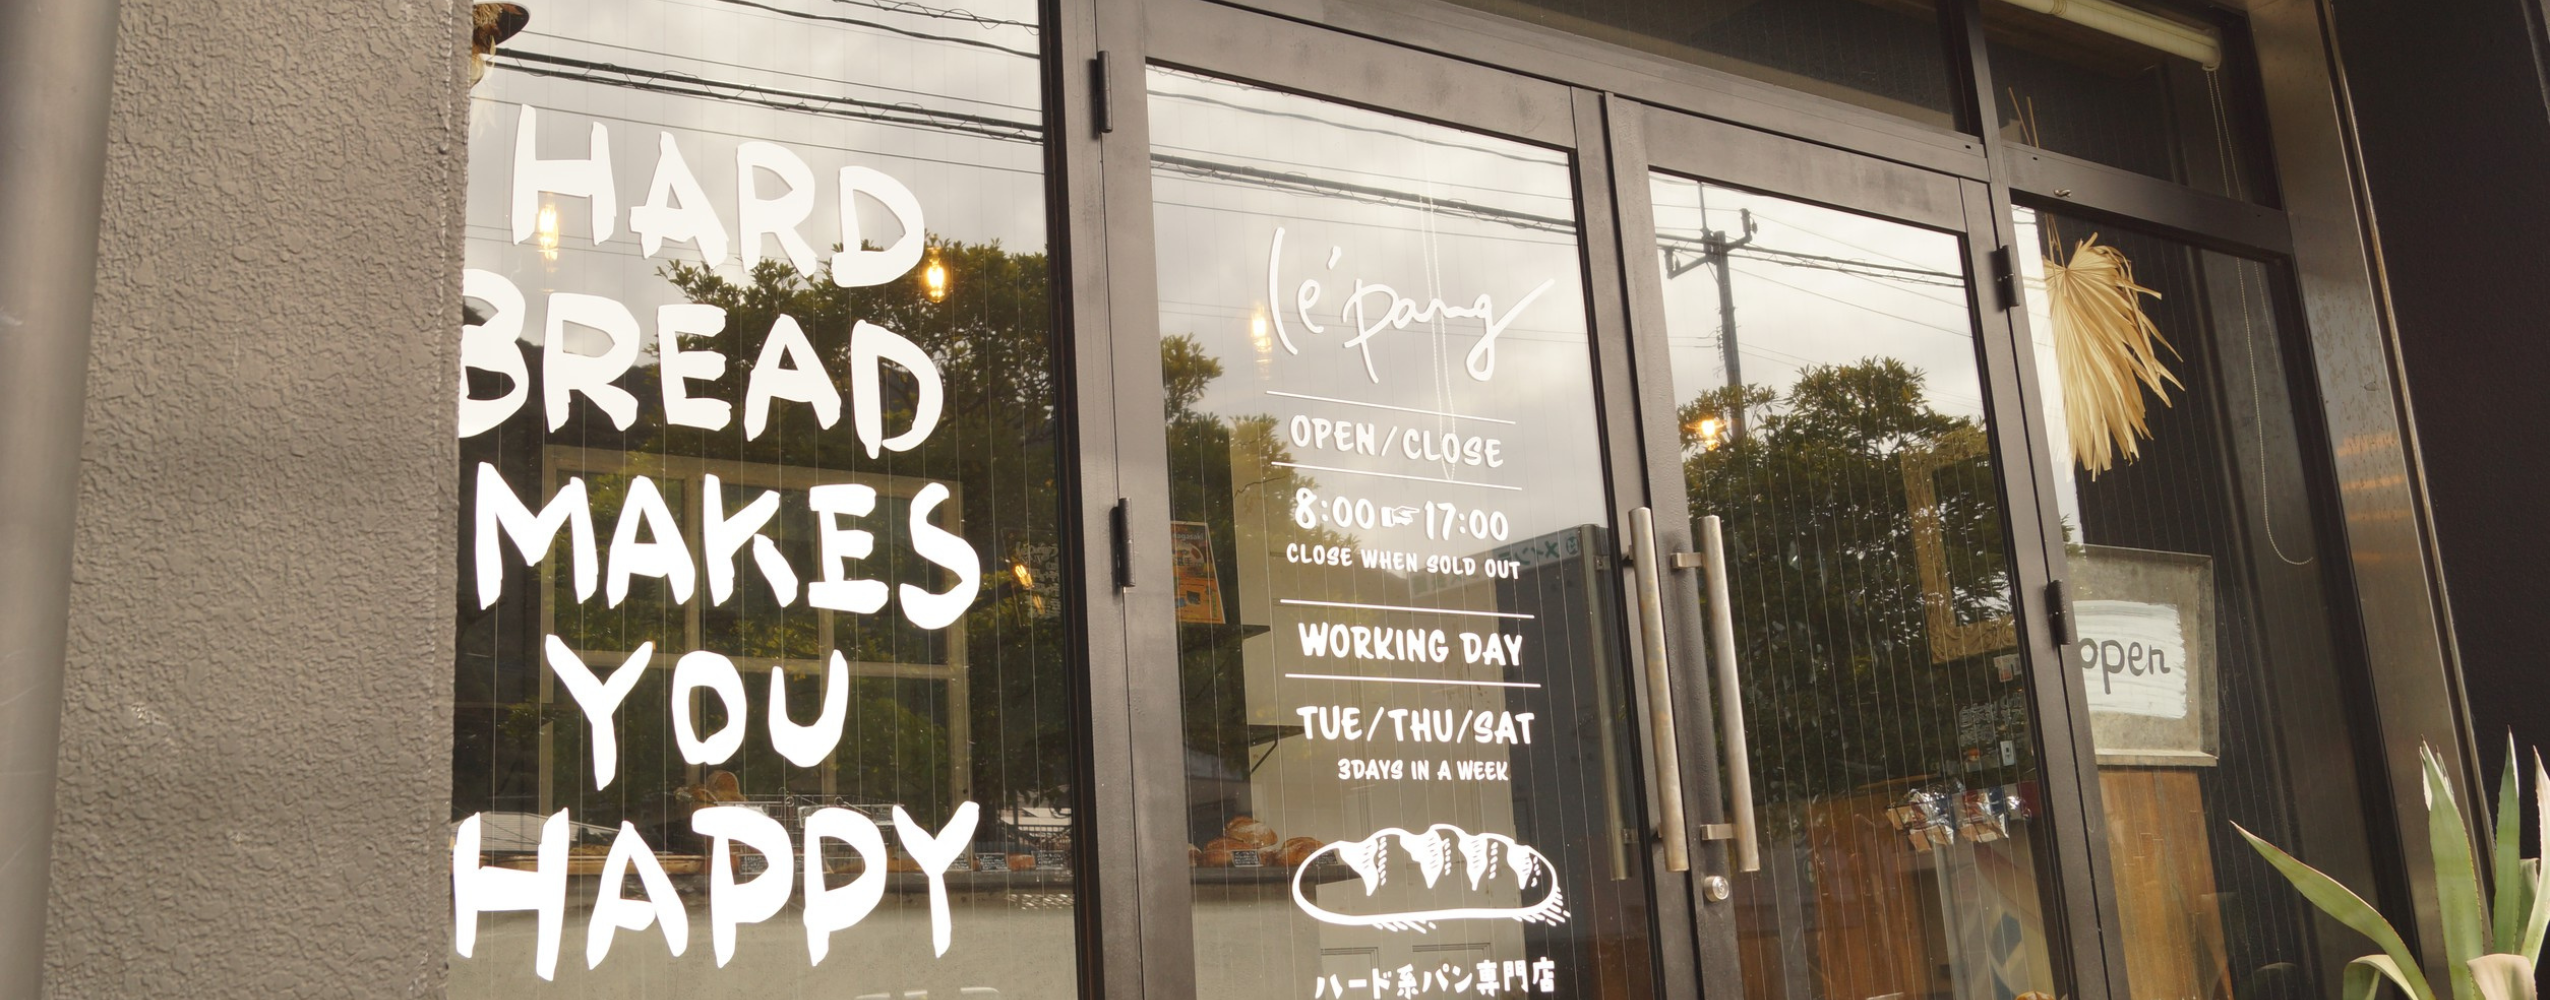 HARD
BREAD
MAKES
YOU
HAPPY
lé pang
OPEN/CLOSE
8:00☞17:00
CLOSE WHEN SOLD OUT
WORKING DAY
TUE/THU/SAT
3DAYS IN A WEEK
ハード系パン専門店
open